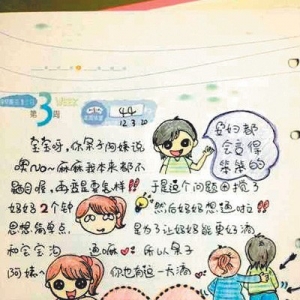 第3周 WEEK
44
12.3.20
孕妇都
会变得
笨笨的
宝宝呀，你呆子阿姨说
麻麻我本来都不
于是这个问题困扰了
妈妈2个钟 然后妈妈想通啦!!
思想简单点， 是为了让妈妈能更好滴
和宝宝沟通嘛 所以呆子
阿姨~ 你也有这一天滴